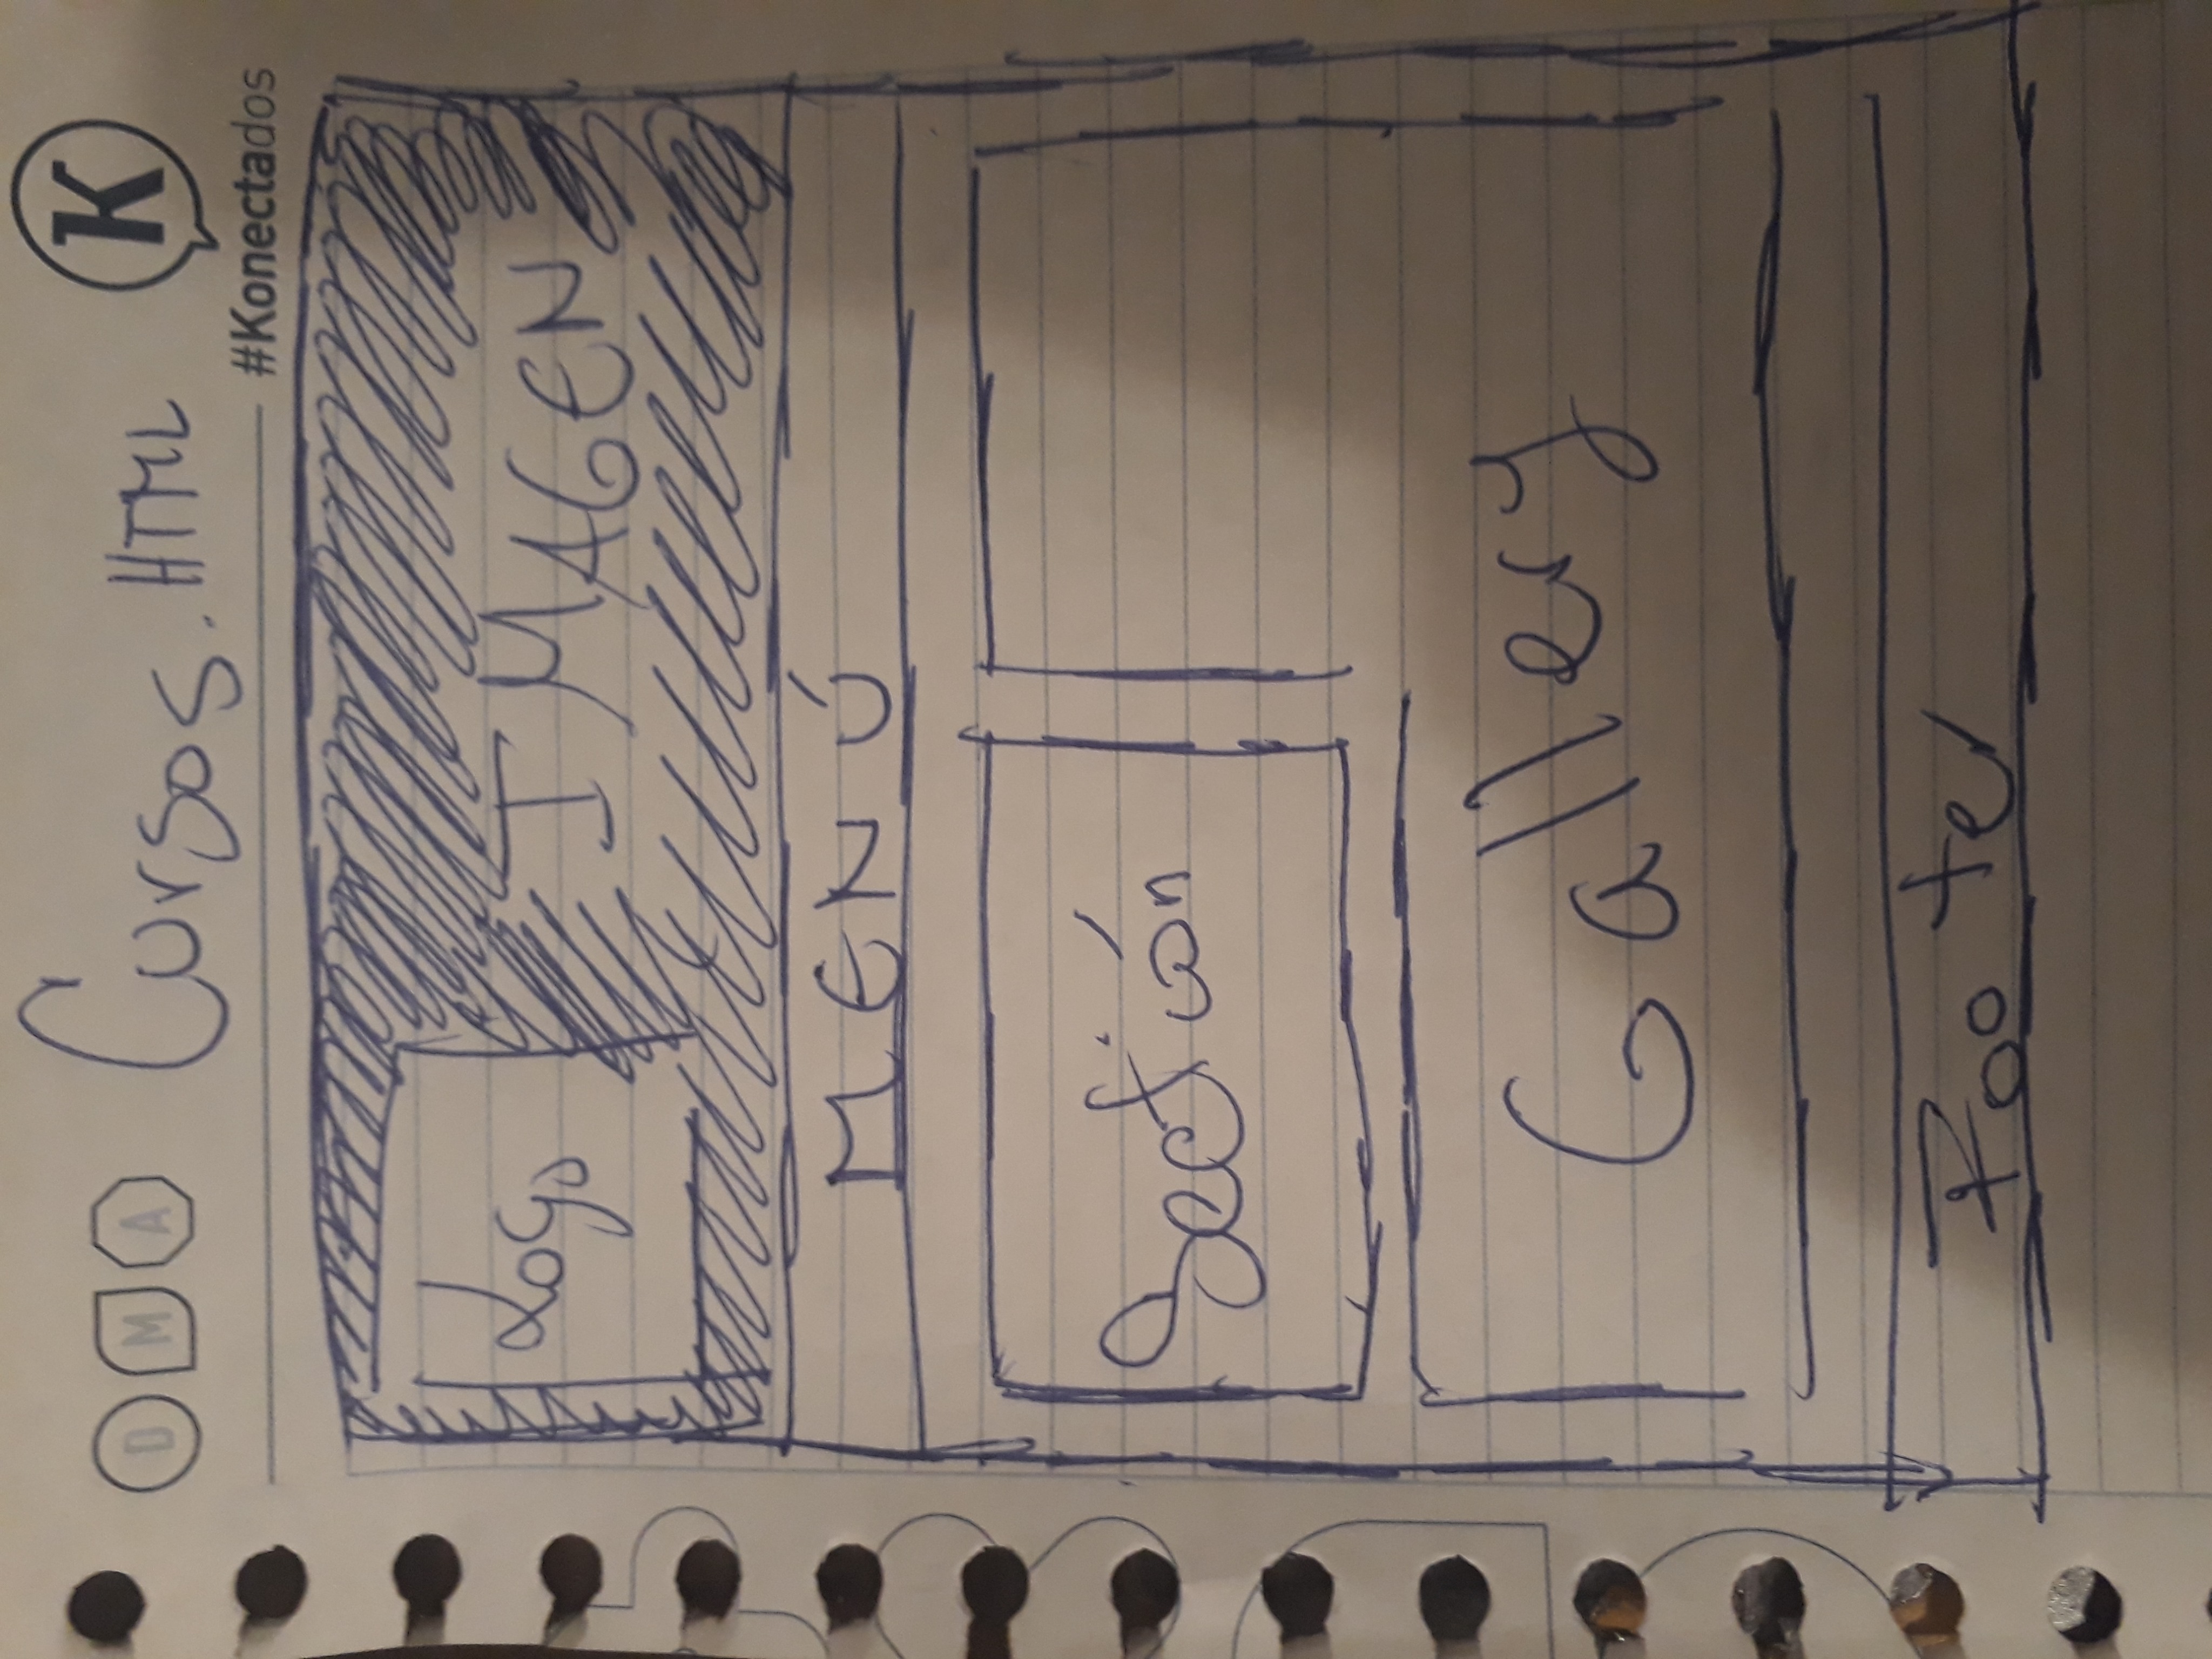 D M A
Cursos.HTML
K
#Konectados
Logo
IMAGEN
MENÚ
Sectión
Gallery
Footer